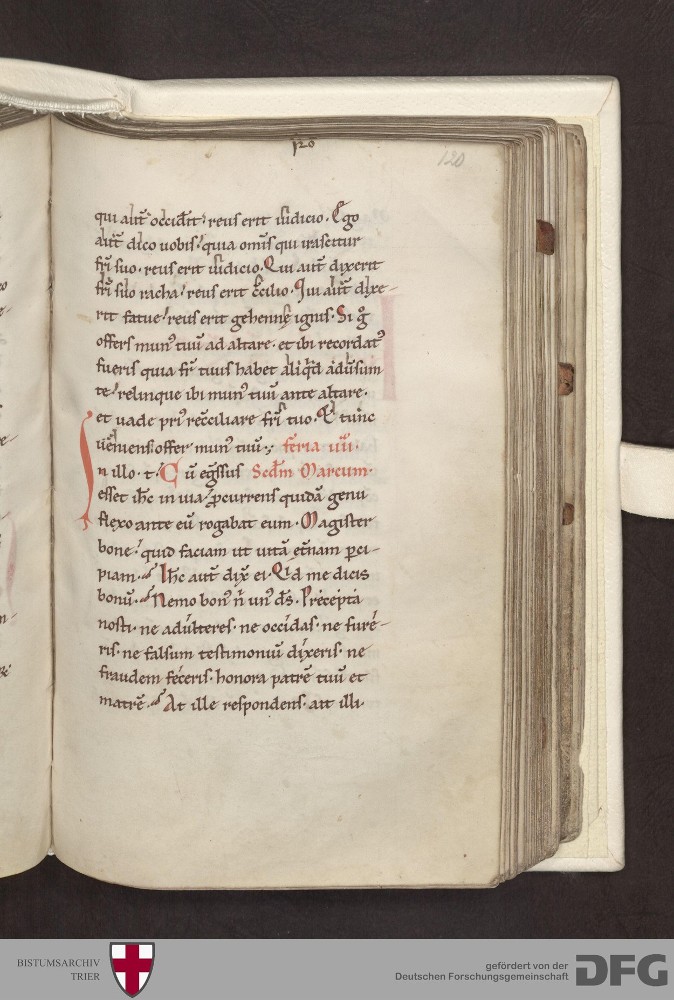 120
120
qui aut̄ occiderit, reus erit iudicio. Ego
aut̄ dico uobis, quia om̄is qui irascitur
fr̄i suo, reus erit iudicio. Qui aut̄ dixerit
fr̄i suo racha, reus erit c̄cilio. Qui aut̄ dixe-
rit fatue, reus erit gehennę ignis. Si gͦ
offers munꝰ tuū ad altare, et ibi recordatꝰ
fueris quia fr̄ tuus habet aliqͥd aduersum
te, relinque ibi munꝰ tuū ante altare,
et uade priꝰ rec̄ciliare fr̄i tuo. Et tunc
ueniens offer munꝰ tuū. feria iiii.
In illo. t. Cū eg̅ssus Scd̄m Marcum.
esset ih̄c in uia, ꝓcurrens quidā genu
flexo ante eū rogabat eum. Magister
bone, quid faciam ut uitā et̄nam ꝑci-
piam. Ih̄c aut̄ dix̄ ei. Qͥd me dicis
bonū. Nemo bonꝰ n̄ unꝰ d̄s. Precepta
nosti. ne adulteres. ne occidas. ne fure-
ris. ne falsum testimoniū dixeris. ne
fraudem feceris. honora patrē tuū et
matrē. At ille respondens. ait illi.
BISTUMSARCHIV
TRIER
gefördert von der
Deutschen Forschungsgemeinschaft
DFG